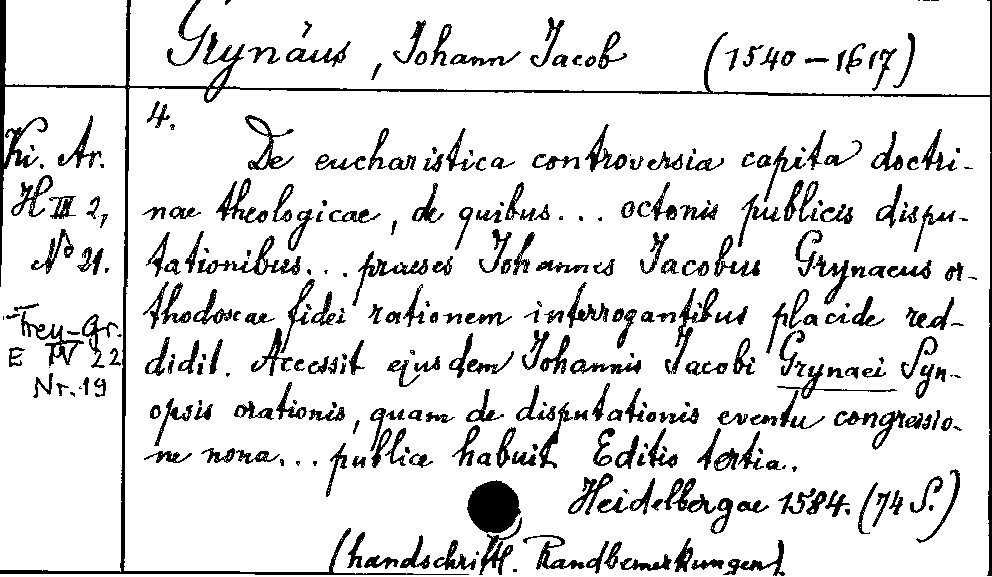 Grynäus, Johann Jacob (1540-1617)
4.
Ki. Ar.
H III 2,
No 21.
Frey-Gr.
E IV 22
Nr. 19
De eucharistica controversia capita doctri-
nae theologicae, de quibus... octonis publicis dispu-
tationibus... praeses Johannes Jacobus Grynaeus or-
thodoxae fidei rationem interrogantibus placide red-
didit. Accessit ejusdem Johannis Jacobi Grynaei Syn-
opsis orationis, quam de disputationis eventu congressio-
ne nona... publice habuit. Editio tertia.
Heidelbergae 1584. (74 S.)
(handschriftl. Randbemerkungen)